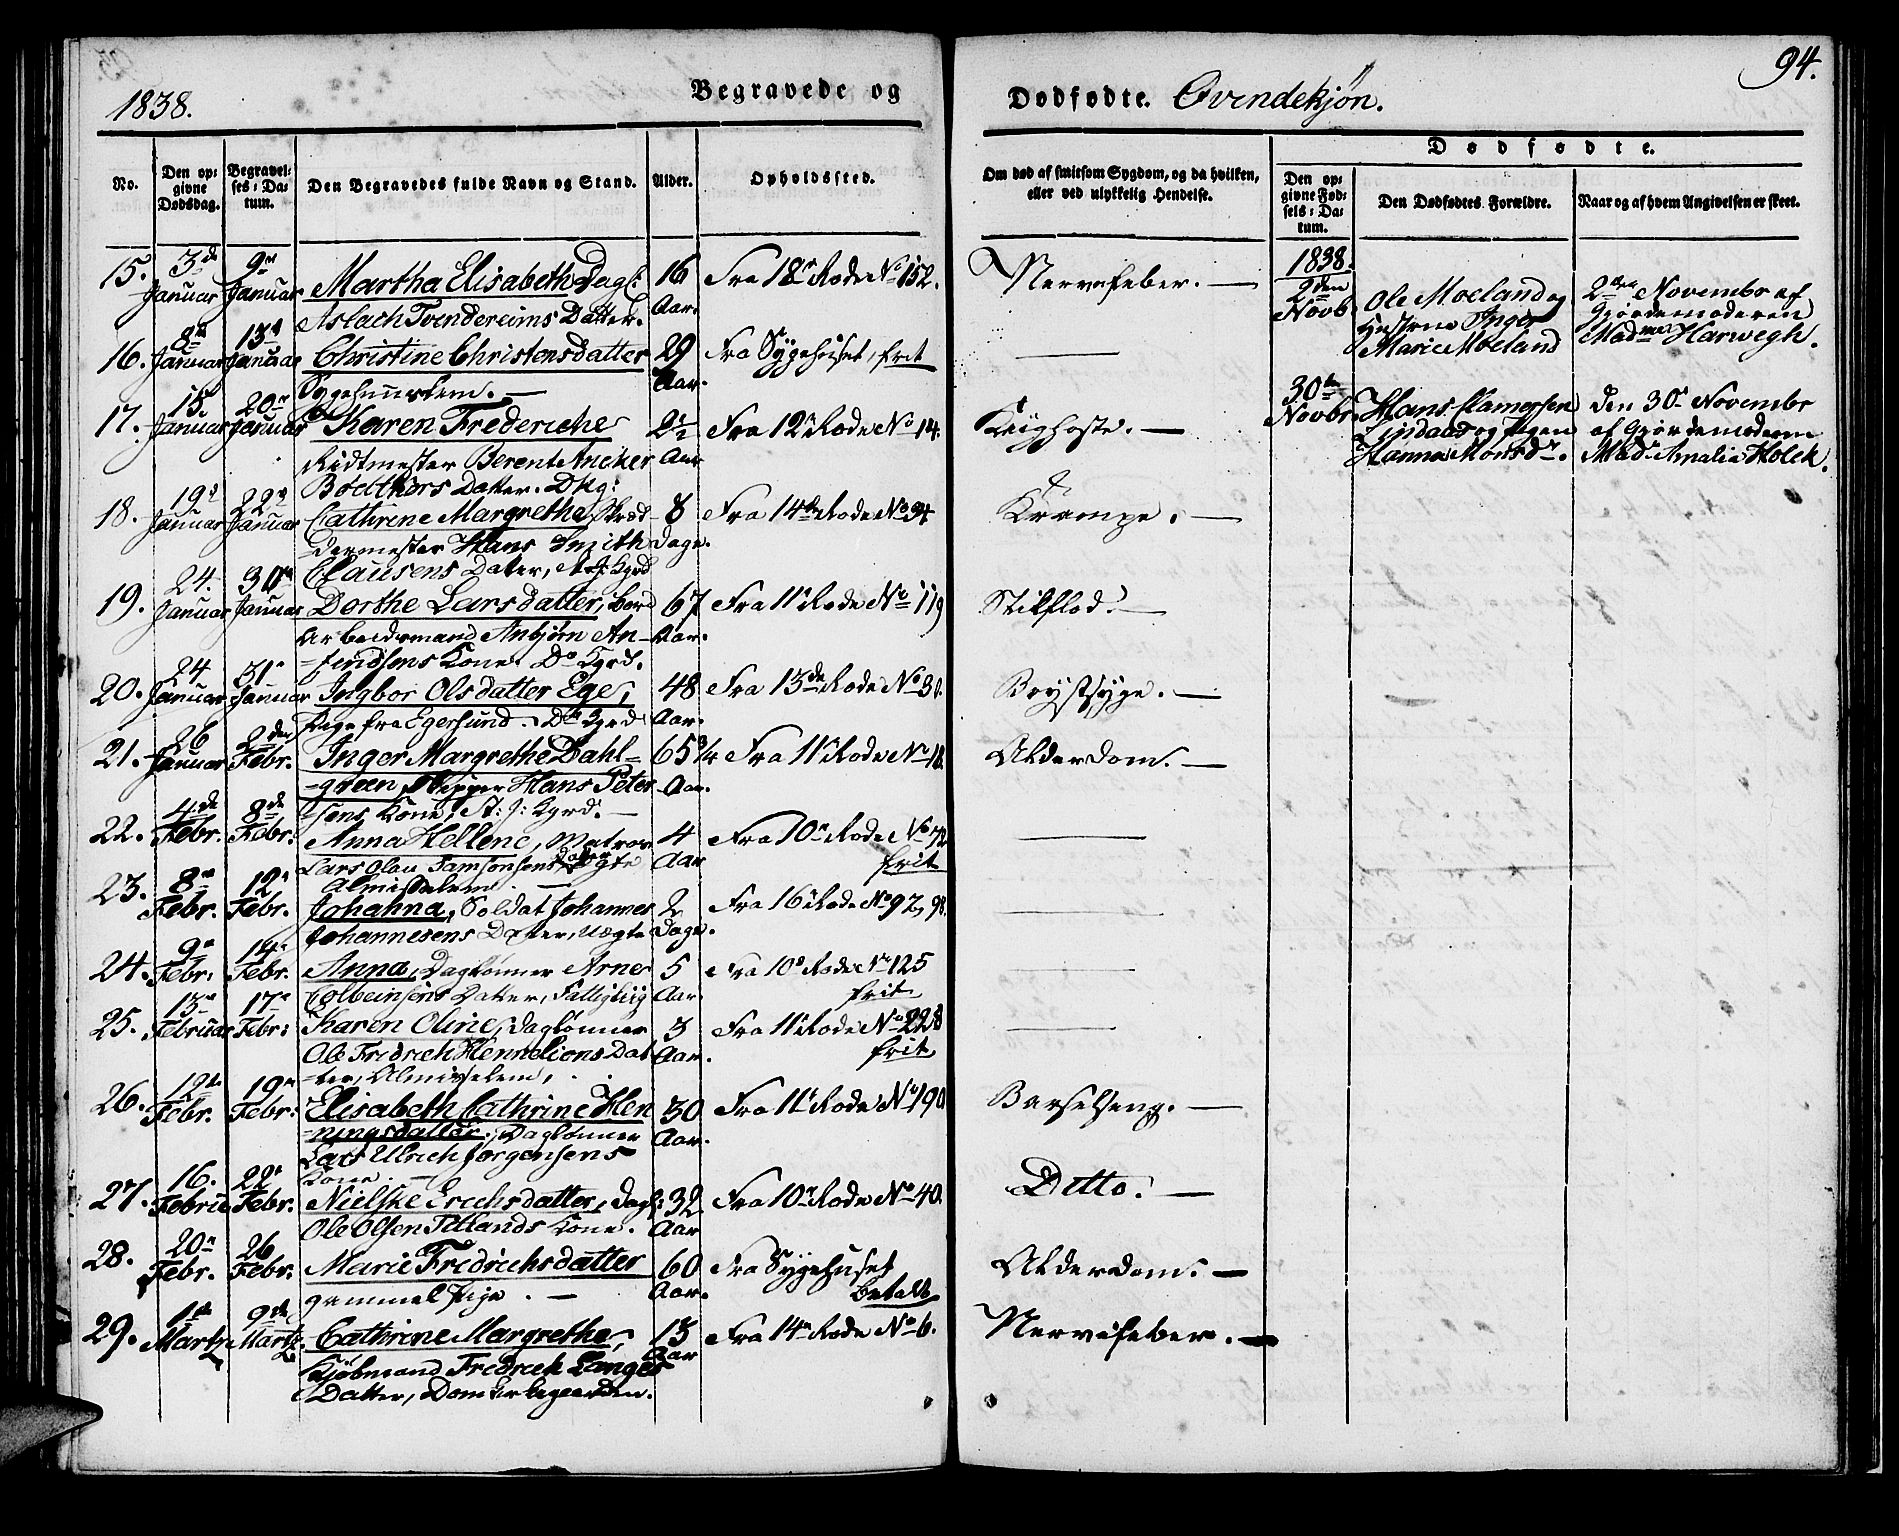 94.
1838.
Begravede og
Dødfødte. Qvindekjøn.
No.
Den opgivne Dødsdag.
Begravelses-Datum.
Den Begravedes fulde Navn og Stand.
Alder.
Opholdssted.
Om død af smitsom Sygdom, og da hvilken, eller ved ulykkelig Hendelse.
Dødfødte.
Den opgivne Fødsels-Datum.
Den Dødfødtes Forældre.
Naar og af hvem Angivelsen er skeet.
15. 3de Januar 9de Januar Martha Elisabeth Dagl: 16 Aar. Fra 18de Rode No 152. Nervefeber. —
Aslach Tvendereims Datter.
16. 8de Januar 13de Januar Christine Christensdatter 29 Aar. Fra Sygehuset, frit —
Sygehuuslem. —
17. 15. Januar 20de Januar Karen Frederiche 2½ Aar Fra 12te Rode No 14. Kighoste. —
Ridtmester Berent Ancker
Boedtkers Datter. Dkg:
18. 19de Januar 22de Januar Cathrine Margrethe, Skræd- 8 Dage. Fra 14de Rode No 94 Krampe. —
dermester Hans Smith
Clausens Datter, N. K. Kgrd
19. 24 Januar 30te Januar Dorthe Larsdatter, Bord 67 Aar. Fra 11te Rode No 119 Stikflod. —
Arbeidsmand Anbjørn An-
-findsens Kone. Do Kgrd.
20. 24 Januar 31te Januar Ingbor Olsdatter Ege, 48 Aar. Fra 13de Rode No 31. Brystsyge. —
Pige fra Egersund. Do Kgrd
21. 26 Januar 2den Febr. Inger Margrethe Dahl- 65¾ Aar. Fra 11te Rode No 18. Alderdom. —
-green, Skipper Hans Peter-
-sens Kone, St: J: Kgrd. —
22. 4de Febr. 8de Febr. Anna Hellene, Matros 4 Aar Fra 10de Rode No 72 frit —
Lars Olau Samsonsens Datter Ægte
Almisselem. —
23. 8de Febr. 12te Febr. Johanna, Soldat Johannes 2 Dage. Fra 16de Rode No 92, 98. —
Johannesens Datter, Uægte
24. 9de Febr. 14de Febr. Anna, Daglønner Arne 5 Aar. Fra 10de Rode No 125 frit —
Colbeinsens Datter, Fattigliig
25. 13de Februar 17de Febr: Karen Oline, Dagtønner 3 Aar. Fra 11te Rode No 228 frit —
Ole Fredrich Hennelions Dat-
-ter, Almisselem,
26. 12te Febr. 19de Febr: Elisabeth Cathrine Hen 30 Aar. Fra 11te Rode No 190 Barselseng. —
-ningsdatter, Daglønner
Lars Ulrich Jørgensens
Kone. —
27. 16. Februar 22de Febr. Nielske Erichsdatter, Dagl: 32 Aar Fra 10de Rode No 40. Ditto. —
Ole Olsen Tetlands Kone.
28. 20de Febr. 26 Febr. Marie Fredrichsdatter 60 Aar. Fra Sygehuset betalt Alderdom. —
gammel Pige. —
29. 1ste Martz 9de Martz Cathrine Margrethe, 13 Aar Fra 14de Rode No 6. Nervefeber. —
Kjøbmand Fredrich Langes
Datter, Domkirkegaarden.
1838.
2den Novb.
Ole Moeland og
Hustrue Inger
Marie Moeland
2den Novembr af
Gjordemoderen
Madme Harwegh.
30te Novbr
Hans Hamersen
Lindaas og Pigen
Hanna Monsdr.
den 30te Novembr
af Gjordemoderen
Mad: Amalia Holck.